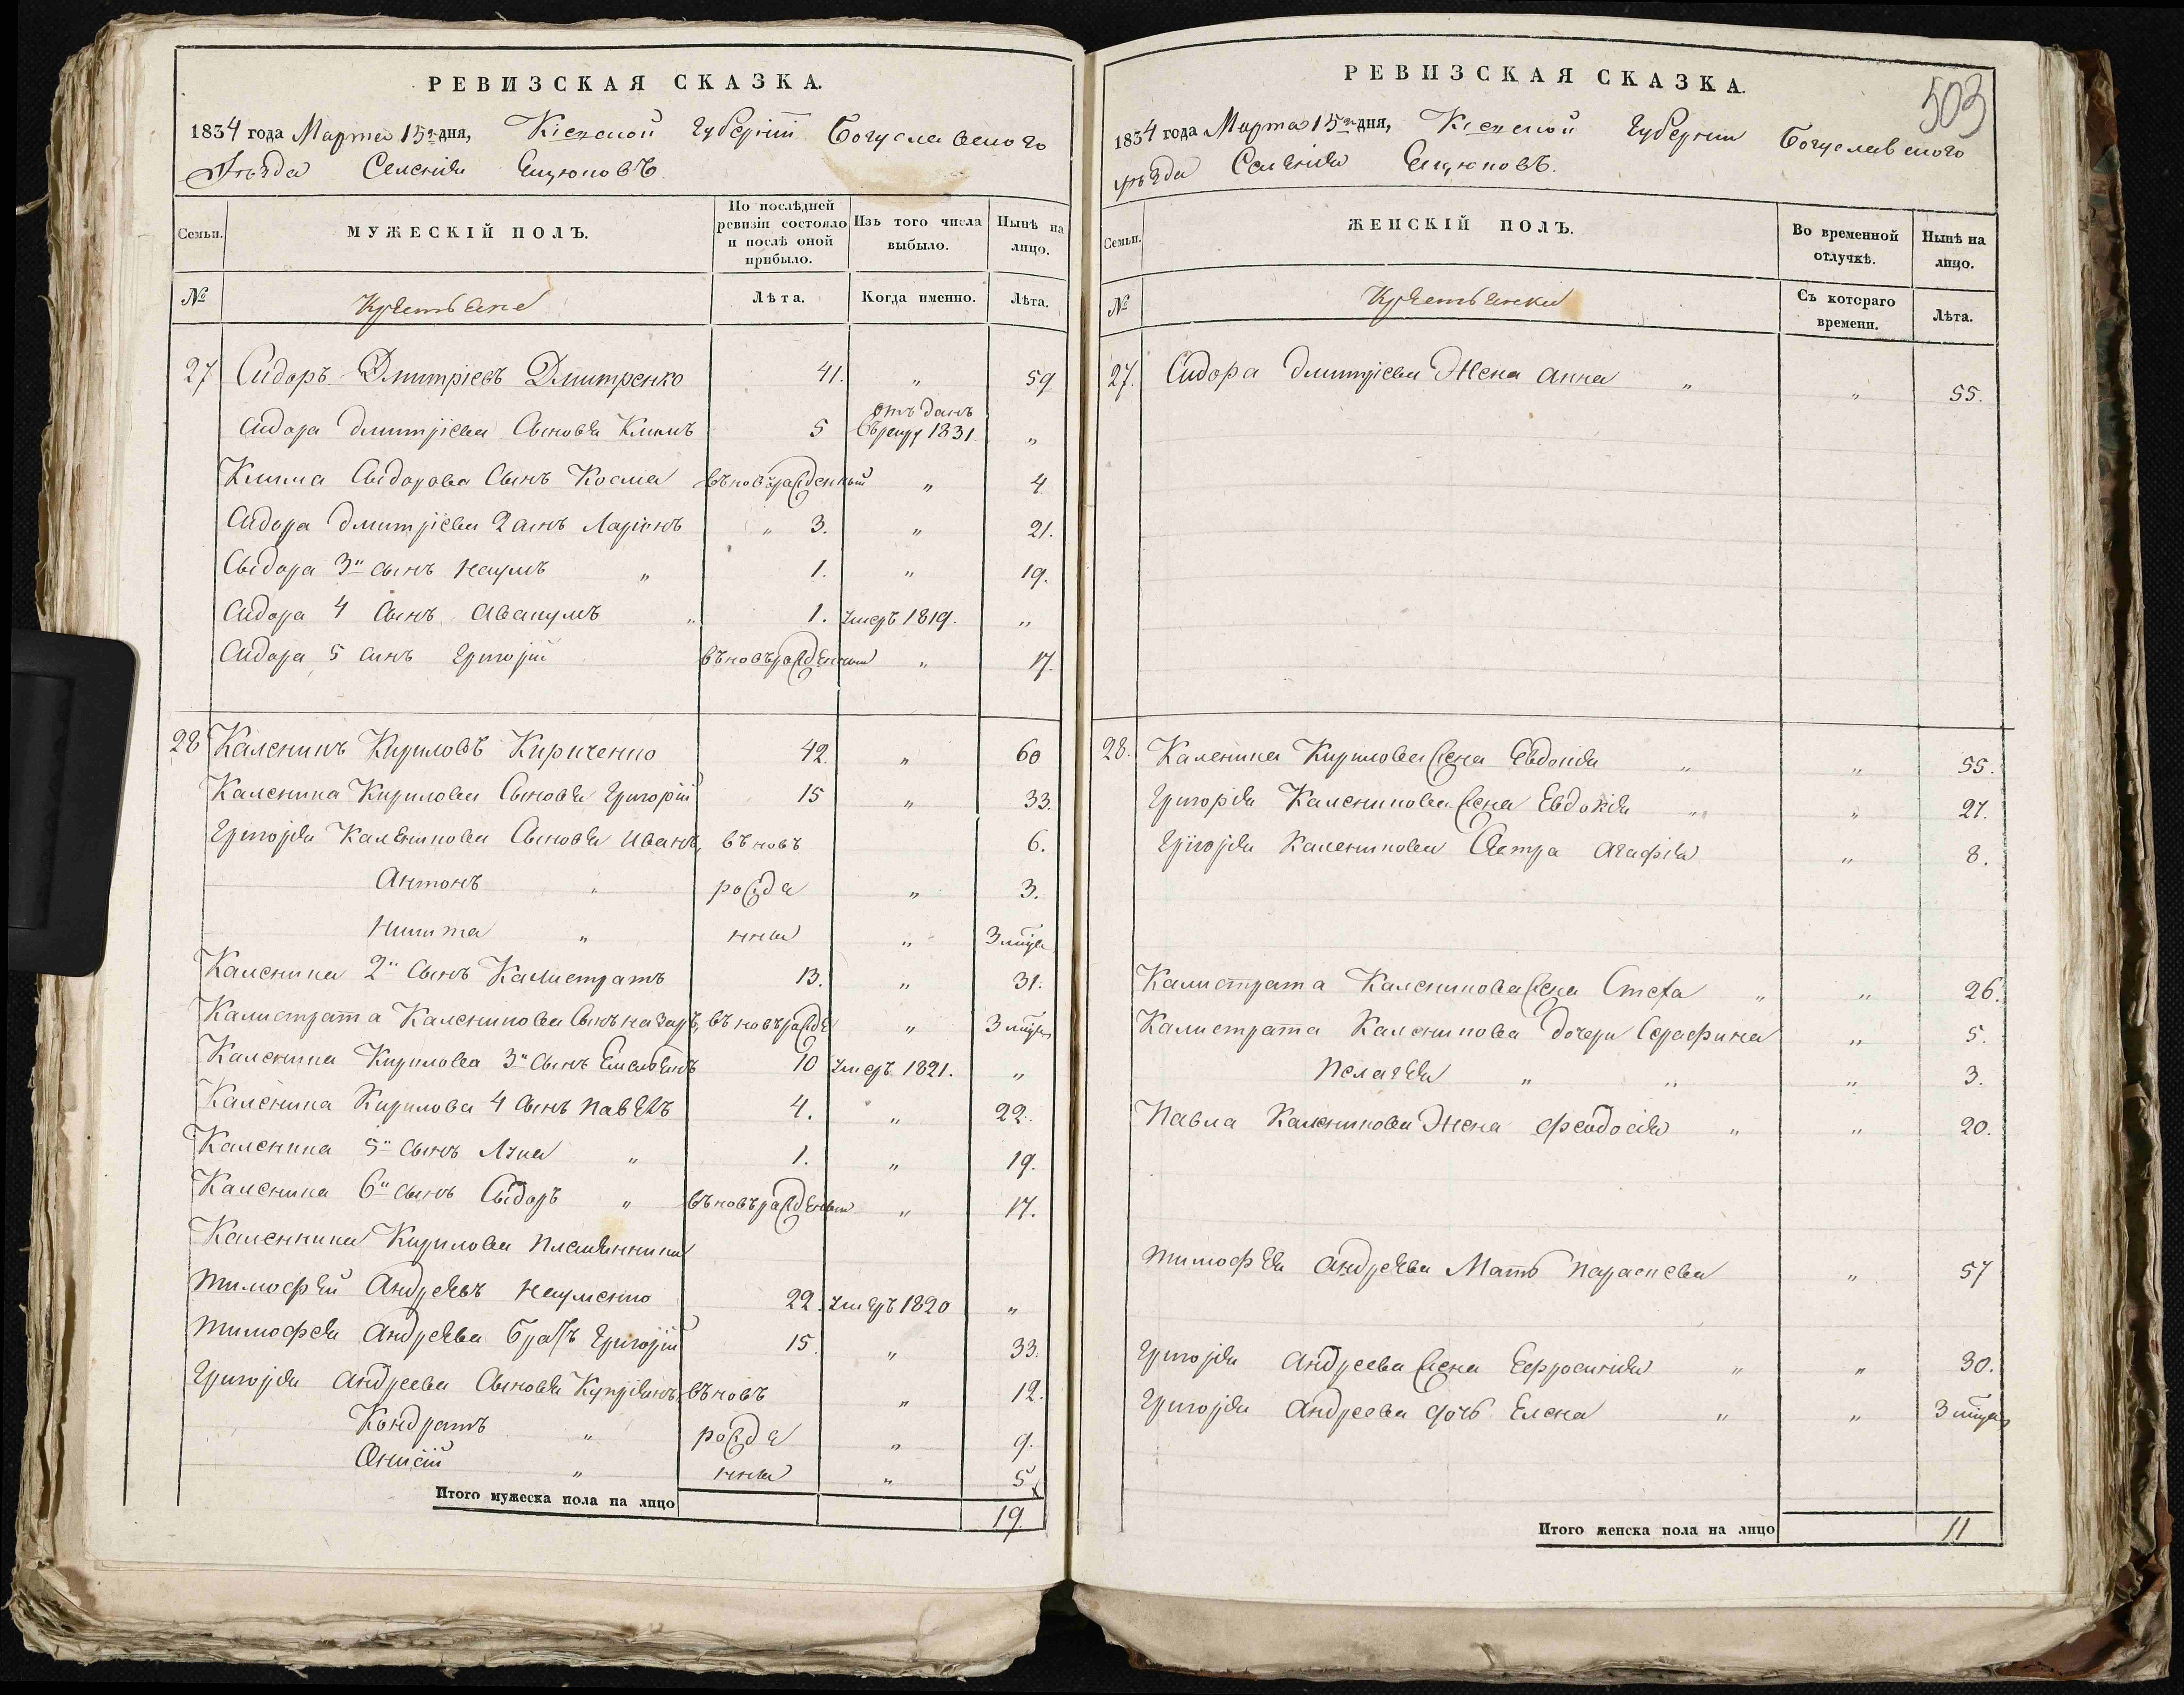 РЕВИЗСКАЯ СКАЗКА.
1834 года Марта 15го дня, Кіевской Губерніи Богуславского
Уѣзда Селенія Ѣцюковъ.
Семьи. МУЖЕСКІЙ ПОЛЪ. По послѣдней ревизіи состояло и послѣ оной прибыло. Изъ того числа выбыло. Нынѣ на лицо.
№ Крѣстьяне Лѣта. Когда именно. Лѣта.
27 Сидоръ Дмитріевъ Дмитренко 41. „ 59
Сидора Дмитріева Сыновья Климъ 5 отъ данъ въ рекру 1831 „
Клима Сидорова Сынъ Косма въновърожденный „ 4
Сидора Дмитріева 2 сынъ Ларіонъ „ 3. „ 21.
Сидора 3й сынъ Наумъ „ 1. „ 19.
Сидора 4 Сынъ Авакумъ „ 1. умеръ 1819. „
Сидора 5 сынъ Григорій въновърожденный „ 17.
28 Каленикъ Кириловъ Кириченко 42. „ 60
Каленика Кирилова Сыновья Григорій 15 „ 33.
Григорія Каленикова Сыновья Иванъ, въновь 6.
Антонъ „ рожде „ 3.
Никита „ нныя „ 3 мѣця
Каленика 2й Сынъ Калистратъ 13. „ 31.
Калистрата Каленикова Сынъ Назаръ, въновърожде „ 3 мѣця
Каленика Кирилова 3й Сынъ Емельянъ 10 умеръ 1821. „
Каленика Кирилова 4 Сынъ Павелъ 4. „ 22.
Каленика 5й Сынъ Лука „ 1. „ 19.
Каленика 6й Сынъ Сидоръ „ въновърожденый „ 17.
Каленника Кирилова племянники
Тимофѣй Андреевъ Науменко 22. умеръ 1820 „
Тимофея Андреева братъ Григорій 15. „ 33.
Григорія Андреева Сыновья Купріянъ, въновь „ 12.
Кондратъ „ рожде „ 9.
Онисій „ нныя „ 5
Итого мужеска пола на лицо 19
503
РЕВИЗСКАЯ СКАЗКА.
1834 года Марта 15го дня, Кіевской Губерніи Богуславского
уѣзда Селенія Ѣцюковъ.
Семьи. ЖЕНСКІЙ ПОЛЪ. Во временной отлучкѣ. Нынѣ на лицо.
№ Крѣстьянки Съ котораго времени. Лѣта.
27. Сидора Дмитріева Жена Анна „ „ 55.
28. Каленика Кирилова жена Евдокія „ „ 55.
Григорія Каленикова жена Евдокія „ „ 27.
Григорія Каленикова Сестра Агафія „ 8.
Калистрата Каленикова жена Стеха „ „ 26.
Калистрата Каленикова дочери Серафина „ 5.
Пелагея „ „ „ 3.
Павла Каленикова Жена Феодосія „ „ 20.
Тимофѣя Андреева Мать Параскева „ 57
Григорія Андреева жена Ефросинія „ „ 30.
Григорія Андреева дочь Елена „ „ 3 мѣця
Итого женска пола на лицо 11